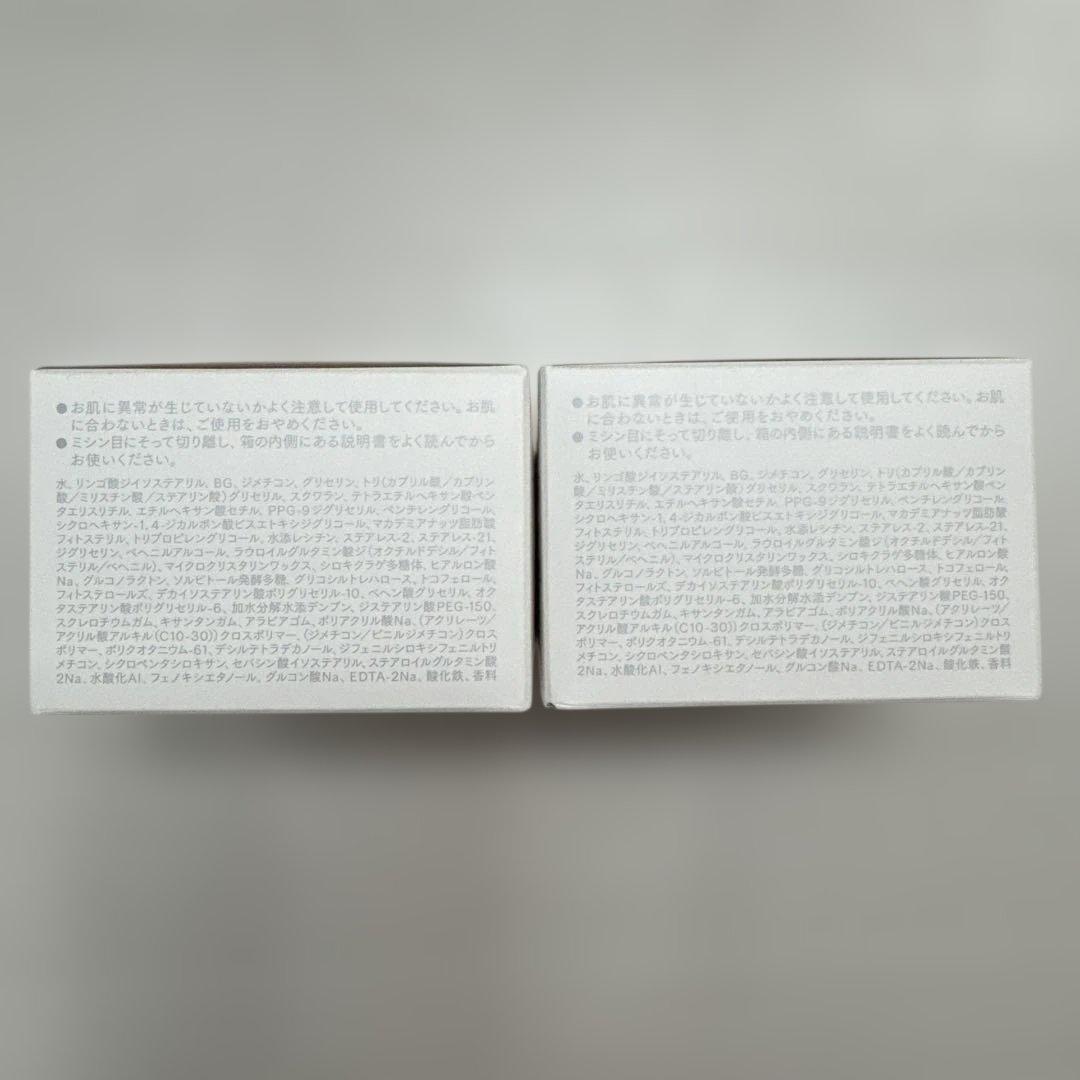 ●お肌に異常が生じていないかよく注意して使用してください。お肌
に合わないときは、ご使用をおやめください。
●ミシン目にそって切り離し、箱の内側にある説明書をよく読んでから
お使いください。
水、リンゴ酸ジイソステアリル、BG、ジメチコン、グリセリン、トリ(カプリル酸/カプリン
酸/ミリスチン酸/ステアリン酸)グリセリル、スクワラン、テトラエチルヘキサン酸ペン
タエリスリチル、エチルヘキサン酸セチル、PPG-9ジグリセリル、ペンチレングリコール、
シクロヘキサン-1,4-ジカルボン酸ビスエトキシジグリコール、マカデミアナッツ脂肪酸
フィトステリル、トリプロピレングリコール、水添レシチン、ステアレス-2、ステアレス-21、
ジグリセリン、ベヘニルアルコール、ラウロイルグルタミン酸ジ(オクチルドデシル/フィト
ステリル/ベヘニル)、マイクロクリスタリンワックス、シロキクラゲ多糖体、ヒアルロン酸
Na、グルコノラクトン、ソルビトール発酵多糖、グリコシルトレハロース、トコフェロール、
フィトステロールズ、デカイソステアリン酸ポリグリセリル-10、ベヘン酸グリセリル、オク
タステアリン酸ポリグリセリル-6、加水分解水添デンプン、ジステアリン酸PEG-150、
スクレロチウムガム、キサンタンガム、アラビアゴム、ポリアクリル酸Na、(アクリレーツ/
アクリル酸アルキル(C10-30))クロスポリマー、(ジメチコン/ビニルジメチコン)クロス
ポリマー、ポリクオタニウム-61、デシルテトラデカノール、ジフェニルシロキシフェニルトリ
メチコン、シクロペンタシロキサン、セバシン酸イソステアリル、ステアロイルグルタミン酸
2Na、水酸化Al、フェノキシエタノール、グルコン酸Na、EDTA-2Na、酸化鉄、香料
●お肌に異常が生じていないかよく注意して使用してください。お肌
に合わないときは、ご使用をおやめください。
●ミシン目にそって切り離し、箱の内側にある説明書をよく読んでから
お使いください。
水、リンゴ酸ジイソステアリル、BG、ジメチコン、グリセリン、トリ(カプリル酸/カプリン
酸/ミリスチン酸/ステアリン酸)グリセリル、スクワラン、テトラエチルヘキサン酸ペン
タエリスリチル、エチルヘキサン酸セチル、PPG-9ジグリセリル、ペンチレングリコール、
シクロヘキサン-1,4-ジカルボン酸ビスエトキシジグリコール、マカデミアナッツ脂肪酸
フィトステリル、トリプロピレングリコール、水添レシチン、ステアレス-2、ステアレス-21、
ジグリセリン、ベヘニルアルコール、ラウロイルグルタミン酸ジ(オクチルドデシル/フィト
ステリル/ベヘニル)、マイクロクリスタリンワックス、シロキクラゲ多糖体、ヒアルロン酸
Na、グルコノラクトン、ソルビトール発酵多糖、グリコシルトレハロース、トコフェロール、
フィトステロールズ、デカイソステアリン酸ポリグリセリル-10、ベヘン酸グリセリル、オク
タステアリン酸ポリグリセリル-6、加水分解水添デンプン、ジステアリン酸PEG-150、
スクレロチウムガム、キサンタンガム、アラビアゴム、ポリアクリル酸Na、(アクリレーツ/
アクリル酸アルキル(C10-30))クロスポリマー、(ジメチコン/ビニルジメチコン)クロス
ポリマー、ポリクオタニウム-61、デシルテトラデカノール、ジフェニルシロキシフェニルトリ
メチコン、シクロペンタシロキサン、セバシン酸イソステアリル、ステアロイルグルタミン酸
2Na、水酸化Al、フェノキシエタノール、グルコン酸Na、EDTA-2Na、酸化鉄、香料